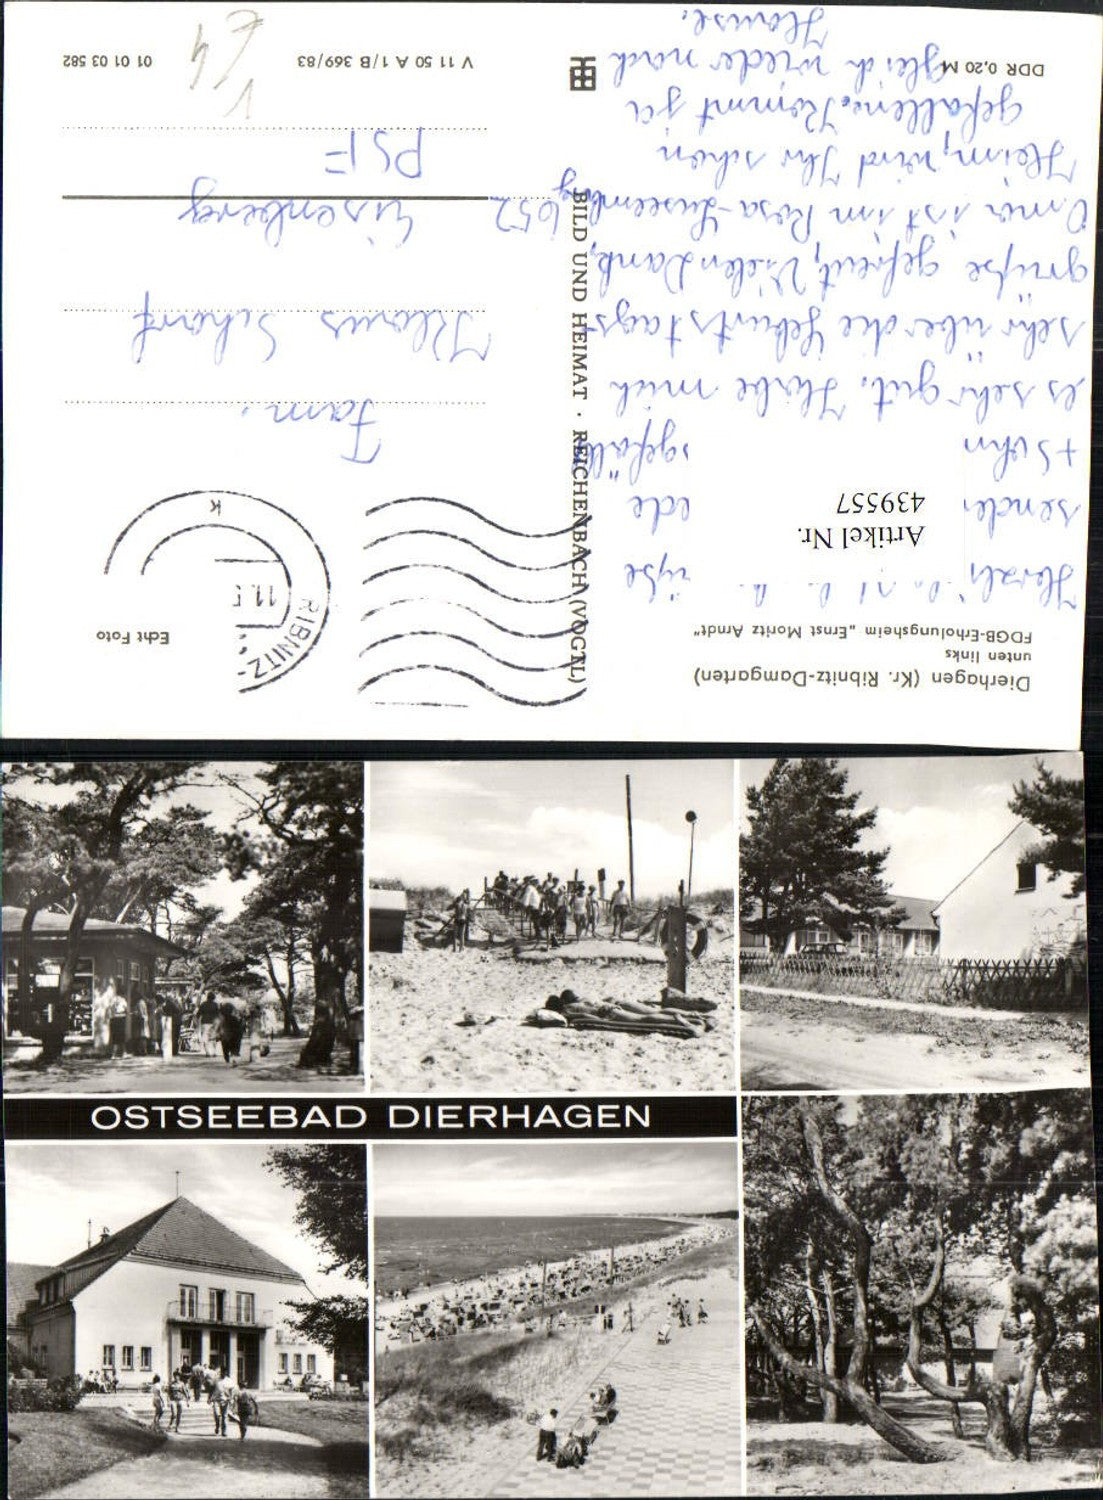 Dierhagen (Kr. Ribnitz-Damgarten)
unten links
FDGB-Erholungsheim „Ernst Moritz Arndt"
Artikel Nr.
439557
sende
+ Sohn gefällt
es sehr gut. Habe mich
sehr über die Geburtstags-
grüße gefreut, Vielen Dank,
Oma ist im Rosa-Luxemburg
Heim, wird Ihr schon
gefallen. Kommt ja
gleich wieder nach
Hause.
DDR 0,20 M
BILD UND HEIMAT · REICHENBACH (VOGTL)
Echt Foto
RIBNITZ-
11.5
k
Fam.
Klaus Scharf
652 Eisenberg
PSF
V 11 50 A 1/B 369/83
01 01 03 582
OSTSEEBAD DIERHAGEN